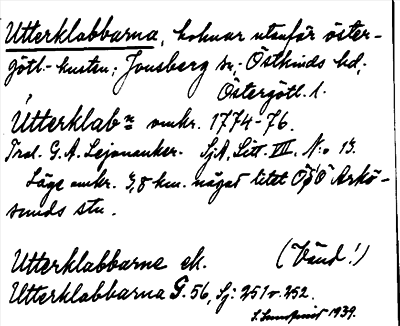 Utterklabbarna, holmar utanför öster-
götl.-kusten; Jonsberg sn, Östkinds hd,
Östergötl. l.
Utterklabn omkr. 1774-76.
Trol. G. A. Lejonanker. SjA, Litt. VII, No 13.
Läge omkr. 3,8 km. något litet OSO Arkö-
sunds stn.
Utterklabbarna ek. (Vänd!)
Utterklabbarna G. 56, Sj: 251 v. 252.
1939.